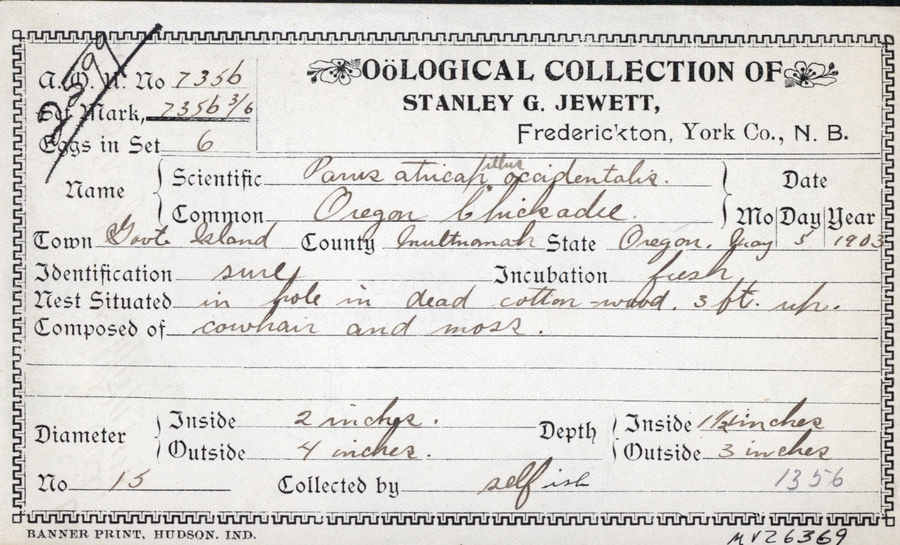 2599
A.O.U. No 735b
OÖLOGICAL COLLECTION OF
Set Mark, 735b 3/6
STANLEY G. JEWETT,
Eggs in Set 6
Frederickton, York Co., N. B.
Name
Scientific Parus atricapillus occidentalis.
Date
Common Oregon Chickadee.
Mo Day Year
Town Govt. Island County Multnomah State Oregon. May 5 1903
Identification sure Incubation fresh
Nest Situated in hole in dead cotton-wood. 3 ft. up.
Composed of cowhair and moss.
Diameter
Inside 2 inches.
Depth
Inside inches
Outside 4 inches.
Outside 3 inches
No 15 Collected by self
1356
BANNER PRINT, HUDSON. IND.
MVZ6369